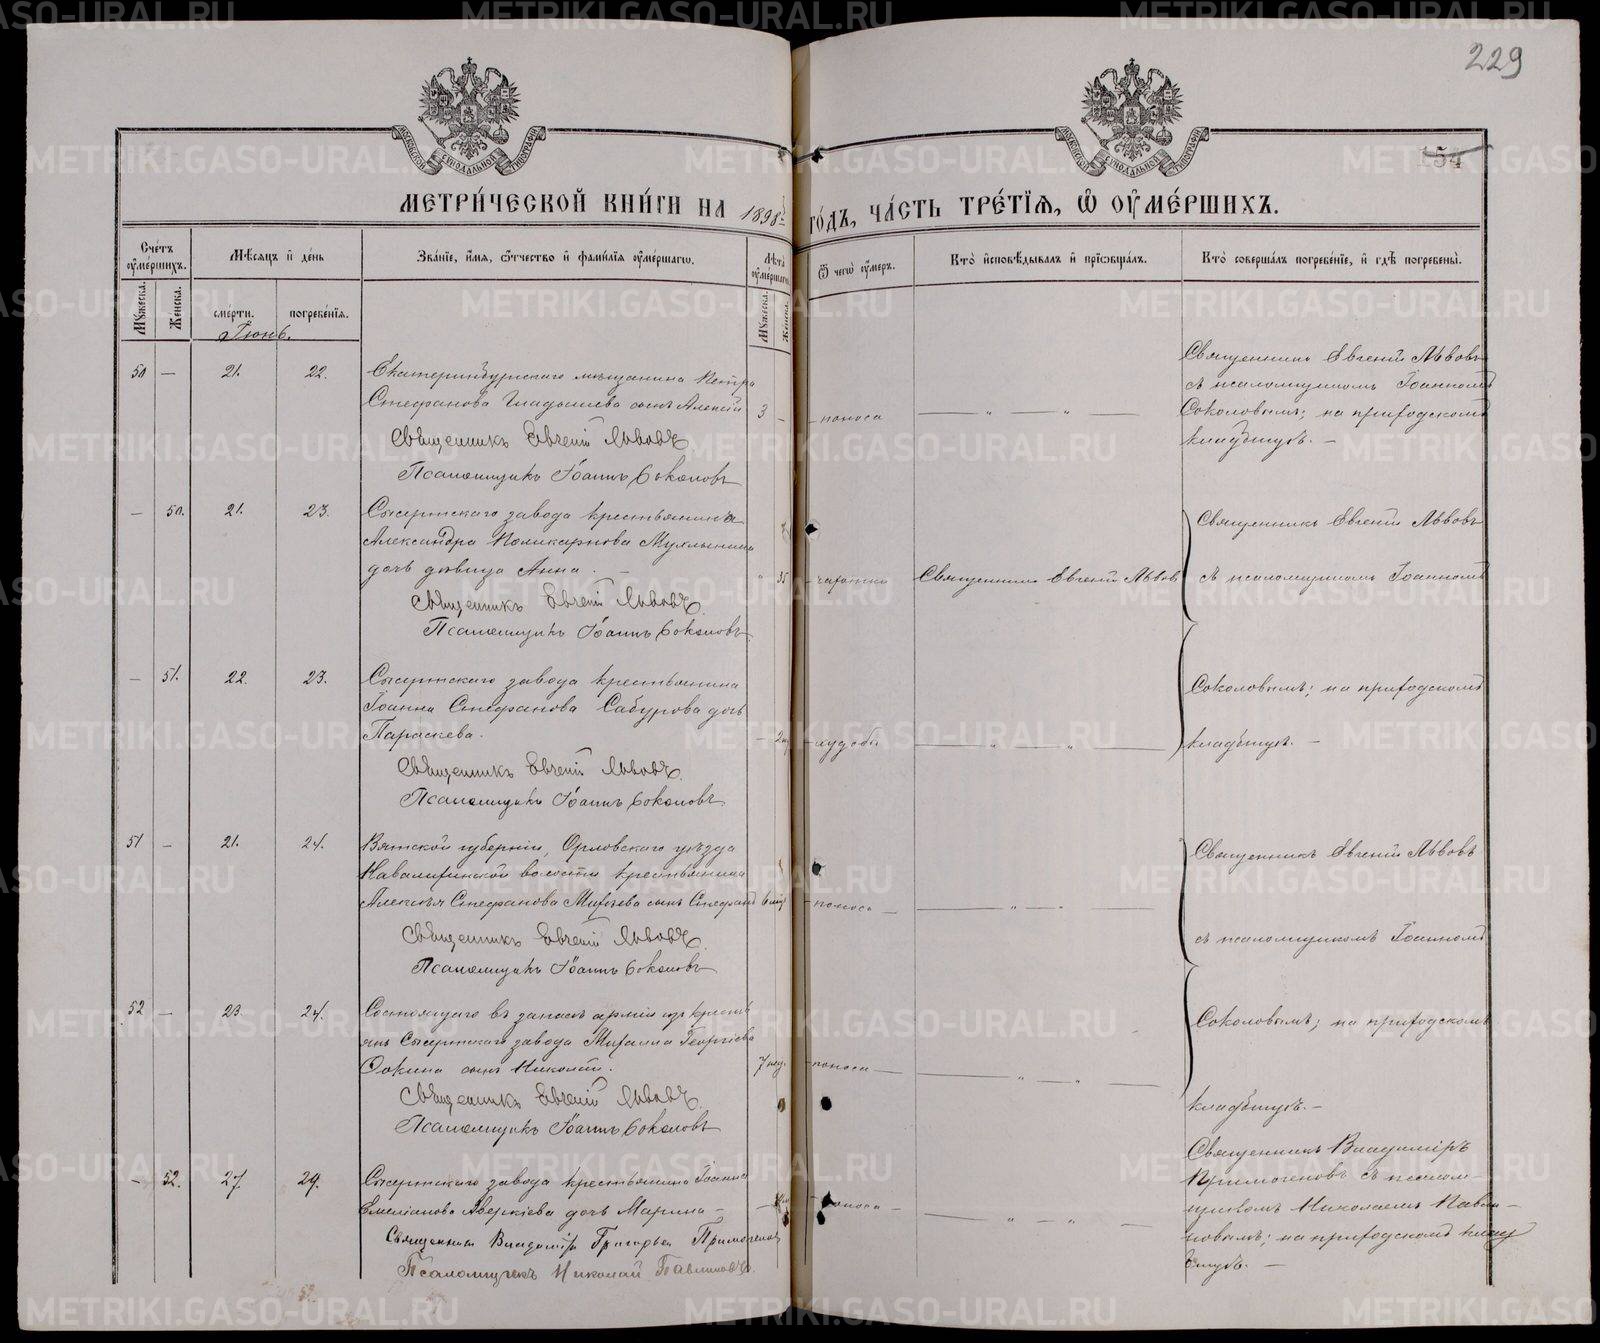 229
154
МОСКОВСКОЙ СѴНОДАЛЬНОЙ ТИПОГРАФІИ
МОСКОВСКОЙ СѴНОДАЛЬНОЙ ТИПОГРАФІИ
МЕТРИ́ЧЕСКОЙ КНИ́ГИ НА 1898 ГО́ДЪ, ЧА́СТЬ ТРЕ́ТІѦ, Ѡ ОУМЕ́РШИХЪ.
Сче́тъ оуме́ршихъ.
Мꙋжеска.
Женска.
Мѣ́сѧцъ и҆ де́нь
сме́рти.
погребе́нїѧ.
Зва́нїе, и҆́мѧ, ѻ҆́тчество и҆ фами́лїѧ оуме́ршагѡ.
Лѣ́та оуме́ршагѡ
Мꙋжеска.
Женска.
Ѿ чегѡ̀ оу́меръ.
Кто̀ и҆сповѣ́дывалъ и҆ прїѡбща́лъ.
Кто̀ соверша́лъ погребе́нїе, и҆ гдѣ̀ погребены̀.
Іюнь.
50 — 21. 22.
Екатеринбургскаго мѣщанина Петра
Стефанова Гладышева сынъ Алексій
3 — поноса — „ — „ —
Священникъ Евгеній Львовъ
Псаломщикъ Іоаннъ Соколовъ
Священникъ Евгеній Львовъ
съ псаломщикомъ Іоанномъ
Соколовымъ; на приходскомъ
кладбищѣ. —
— 50. 21. 23.
Сысертскаго завода крестьянина
Александра Поликарпова Мухлынина
дочь дѣвица Анна. —
35 чахотки Священникъ Евгеній Львовъ
Священникъ Евгеній Львовъ
Псаломщикъ Іоаннъ Соколовъ
Священникъ Евгеній Львовъ
съ псаломщикомъ Іоанномъ
— 51. 22. 23.
Сысертскаго завода крестьянина
Іоанна Стефанова Сабурова дочь
Параскева.
— худобы — „ — „ —
Священникъ Евгеній Львовъ
Псаломщикъ Іоаннъ Соколовъ
Соколовымъ; на приходскомъ
кладбищѣ. —
51 — 21. 24.
Вятской губерніи, Орловскаго уѣзда
волости крестьянина
Алексѣя Стефанова Михѣева сынъ Стефанъ
6 поноса — — „ — „ —
Священникъ Евгеній Львовъ
Псаломщикъ Іоаннъ Соколовъ
Священникъ Евгеній Львовъ
съ псаломщикомъ Іоанномъ
52 — 23. 24.
Состоящаго въ запасѣ арміи изъ кресть
янъ Сысертскаго завода Михаила Георгіева
сынъ Николай.
7 нед. поноса — — „ — „ —
Священникъ Евгеній Львовъ
Псаломщикъ Іоаннъ Соколовъ
Соколовымъ; на приходскомъ
кладбищѣ. —
— 52. 27. 29.
Сысертскаго завода крестьянина Іоанна
Емеліанова Аверкіева дочь Марина —
поноса — — „ — „ —
Священникъ Владиміръ Григорьевъ Примогеновъ
Псаломщикъ Николай Павлиновъ.
Священникъ Владиміръ
Примогеновъ съ псалом-
щикомъ Николаемъ Павли-
новымъ; на приходскомъ клад
бищѣ. —
METRIKI.GASO-URAL.RU